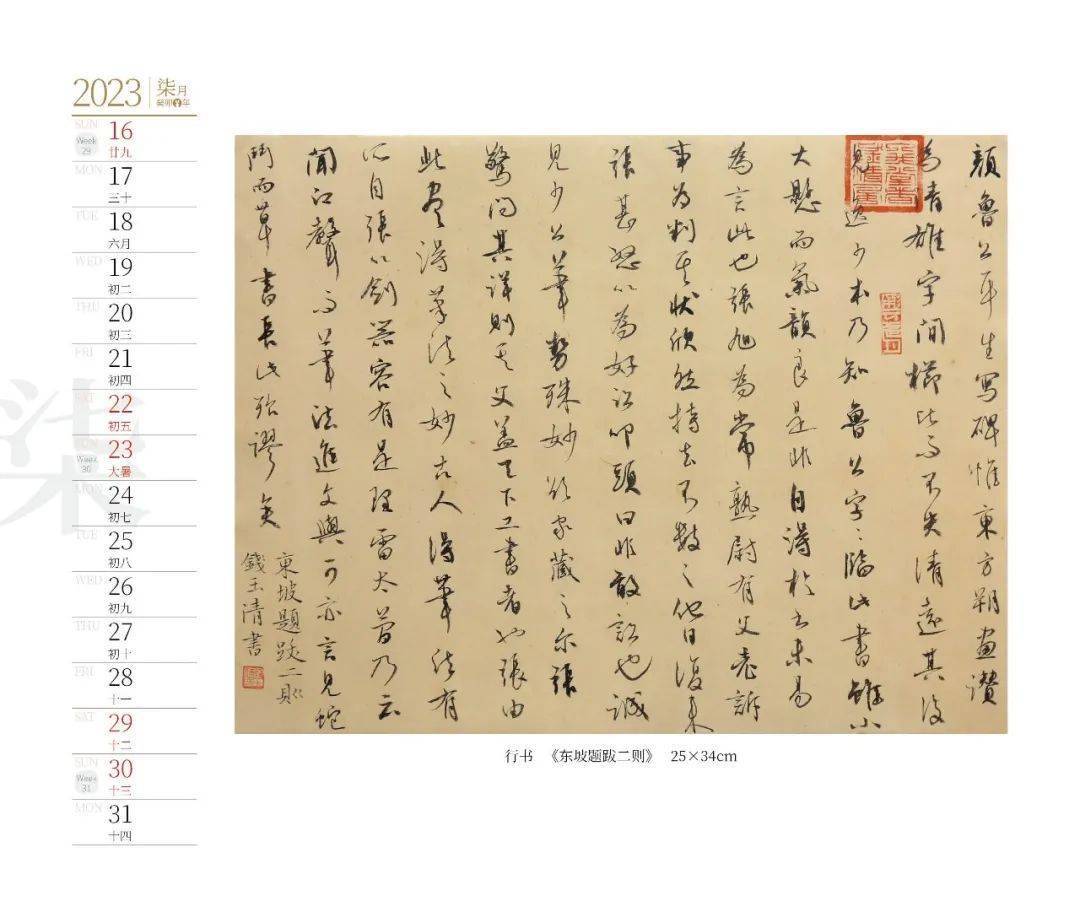 2023
柒月
癸卯年
SUN 16
Week 29
廿九
MON 17
三十
TUE 18
六月
WED 19
初二
THU 20
初三
FRI 21
初四
SAT 22
初五
SUN 23
Week 30
大暑
MON 24
初七
TUE 25
初八
WED 26
初九
THU 27
初十
FRI 28
十一
SAT 29
十二
SUN 30
Week 31
十三
MON 31
十四
柒
顔魯公平生写碑惟東方朔畫讃
為清雄字間櫛比而不失清遠其後
見逸少本乃知魯公字〻臨此書雖小
大懸而氣韻良是非自得於書未易
為言此也張旭為常熟尉有父老訴
事為判其狀欣然持去不數〻他日復来
張甚怒以為好訟叩頭曰非敢訟也誠
見少公筆勢殊妙欲家藏之尔張
驚問其詳則其父盖天下工書者也張由
此盡得筆法之妙古人得筆法有
所自張以劍器容有是理雷太簡乃云
聞江聲而筆法進文與可亦言見蛇
鬥而草書長此殆謬矣
東坡題跋二則
錢玉清書
行书 《东坡题跋二则》 25×34cm